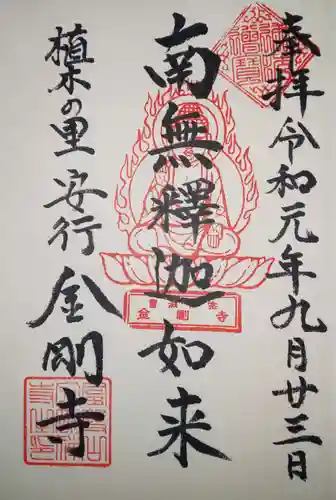 奉拝 令和元年九月廿三日
南無釋迦如来
植木の里 安行 金剛寺
金剛寺